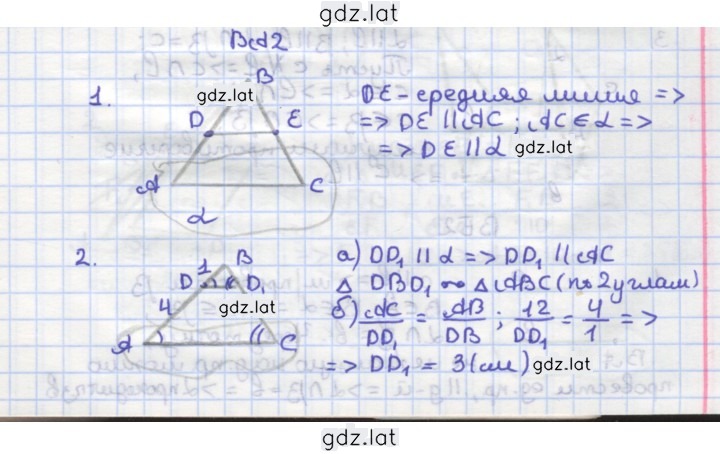 gdz.lat
Вd2
1.
B
gdz.lat
D E
A C
α
DE - средняя линия =>
=> DE || AC ; AC ∈ α =>
=> DE || α gdz.lat
2.
B
1
D D₁
gdz.lat
4
A C
а) DD₁ || α => DD₁ || AC
△ DBD₁ ~ △ ABC (по 2 углам)
б) AC/DD₁ = AB/DB ; 12/DD₁ = 4/1 , =>
=> DD₁ = 3 (см) gdz.lat
gdz.lat